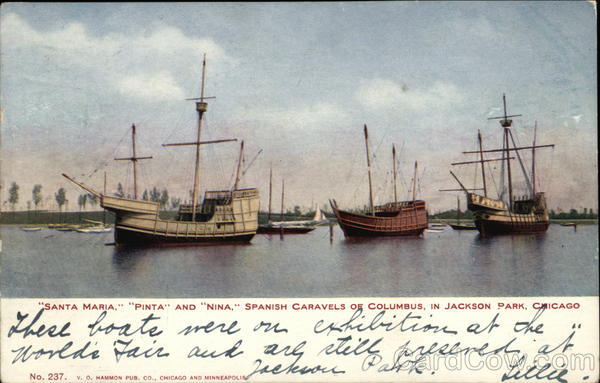 "SANTA MARIA," "PINTA" AND "NINA," SPANISH CARAVELS OF COLUMBUS, IN JACKSON PARK, CHICAGO
These boats were on exhibition at the "
World's Fair and are still preserved at
No. 237. V. O. HAMMON PUB. CO., CHICAGO AND MINNEAPOLIS
Jackson Park.
CardCow.com